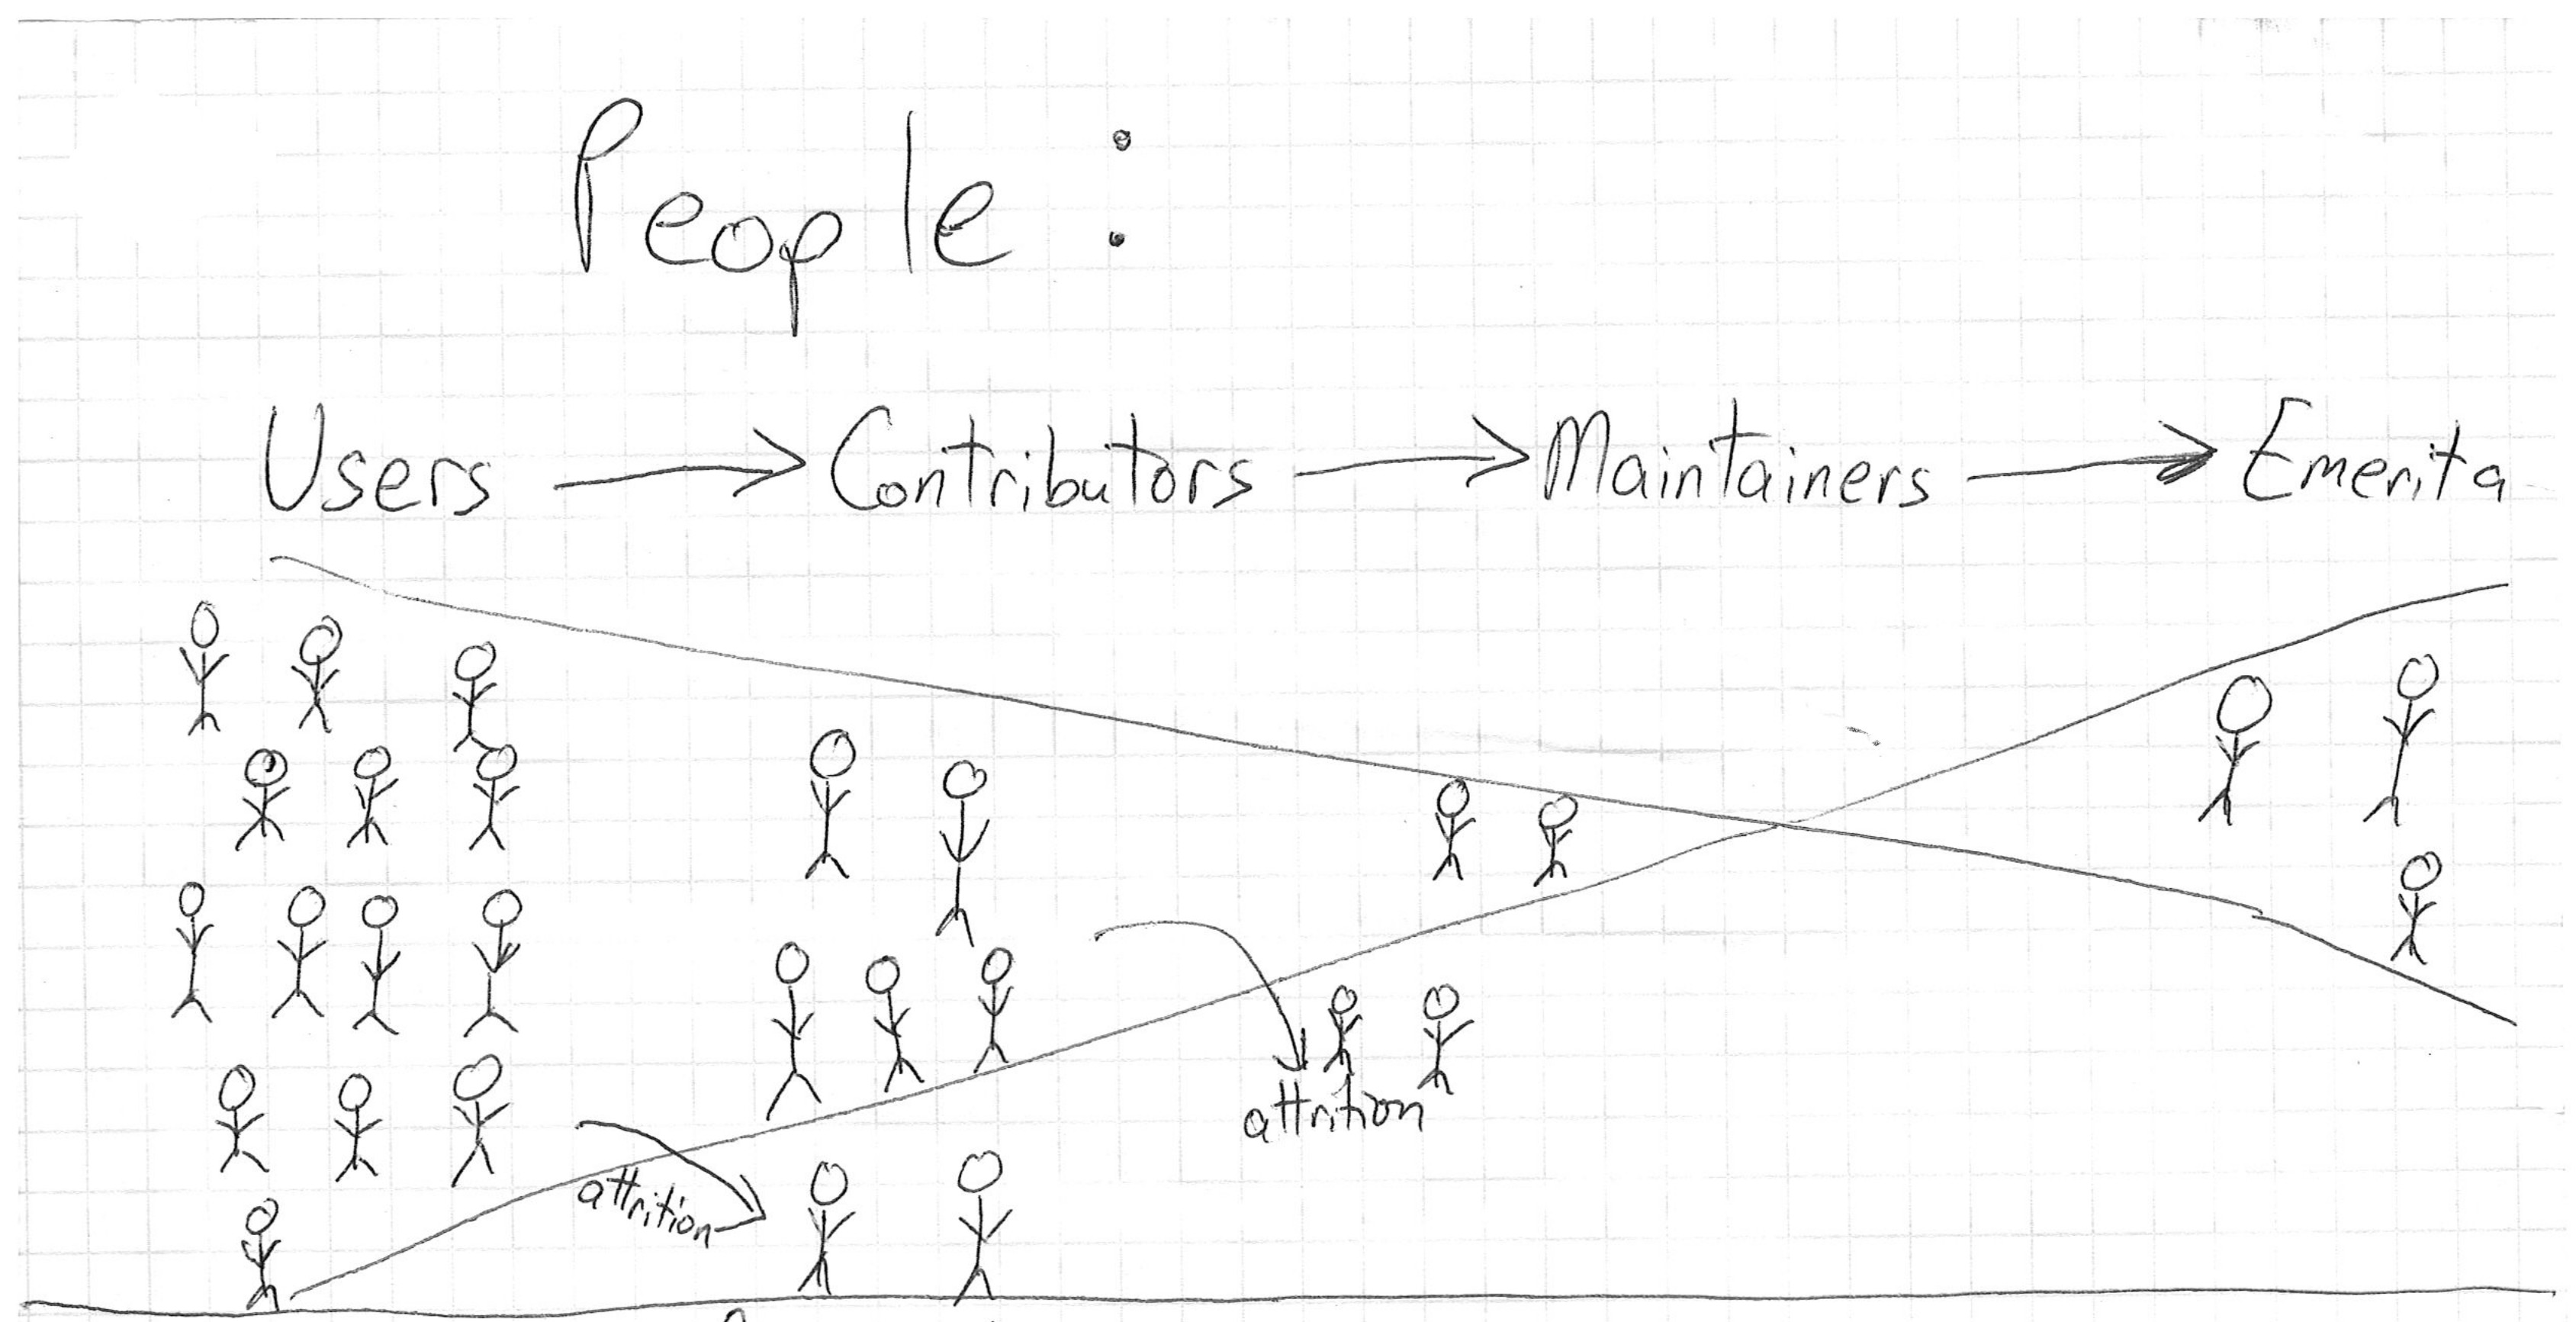 People:
Users → Contributors → Maintainers → Emerita
attrition
attrition